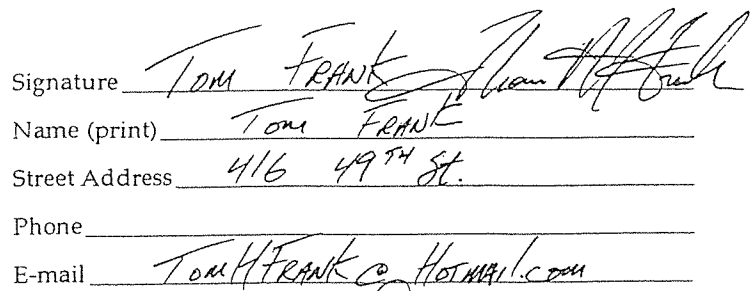 Signature Tom FRANK
Name (print) Tom FRANK
Street Address 416 49TH St.
Phone
E-mail TomHFRANK@HOTMAIL.com